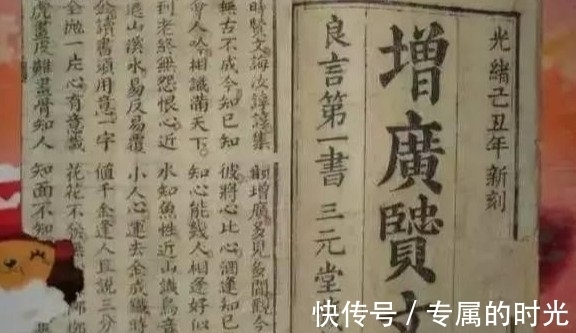 光緒己丑年新刻
增廣賢
良言第一書 三元堂
時賢文誨汝諄諄集 增廣多見多聞觀今
無古不成今知己知 彼將心比心酒逢知己
會人吟相識滿天下 知心能幾人相逢好似
到老終無怨恨心近 水知魚性近山識鳥音
退山溪水易反易覆 小人心運去金成鐵時
金讀書須用意一字 值千金逢人且說三分
全拋一片心有意栽 花花不發
虎畫皮難畫骨知人 知面不知
快传号 / 专属的时光